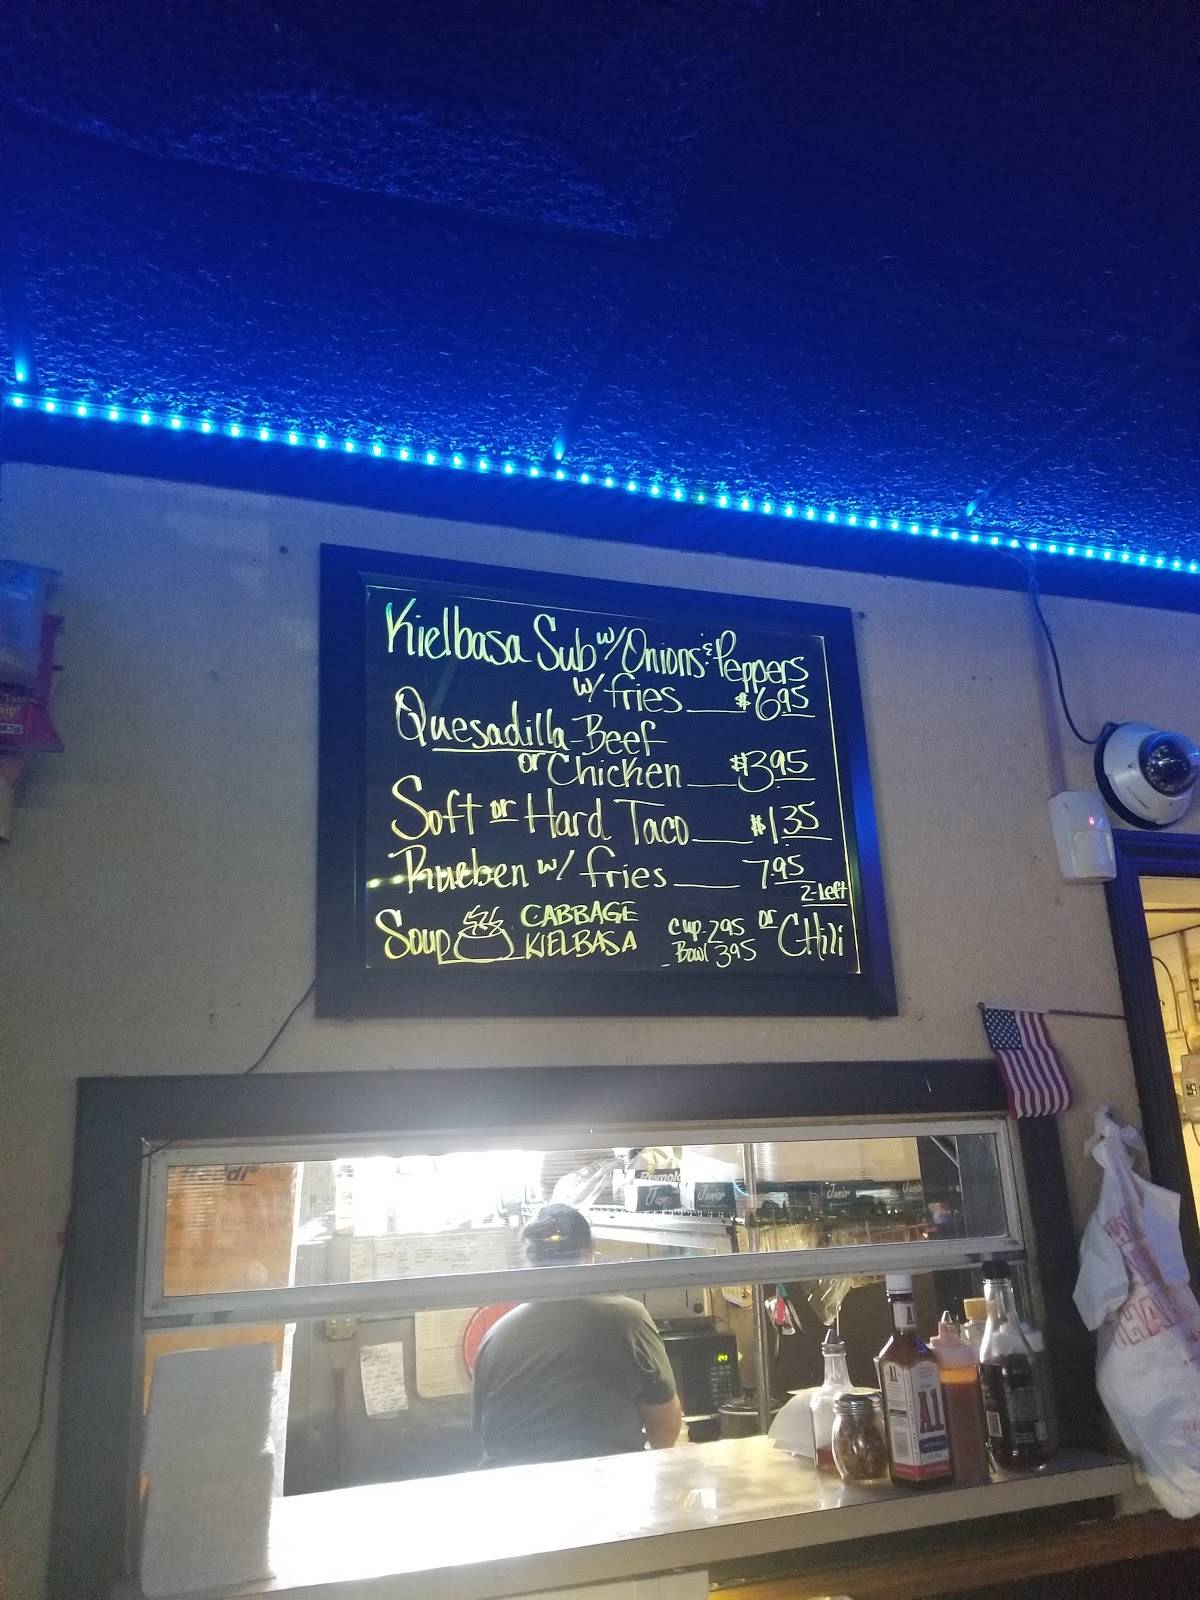 Kielbasa Sub w/ Onions & Peppers
w/ fries $6.95
Quesadilla - Beef
or Chicken $3.95
Soft or Hard Taco $1.35
Rueben w/ fries 7.95
2-Left
Soup CABBAGE KIELBASA Cup - 2.95 or Chili
Bowl 3.95
A1
Junior
Junior